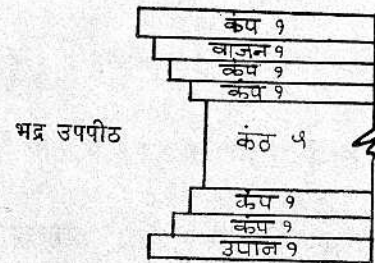 कंप १
वाजन १
कंप १
कंप १
भद्र उपपीठ
कंठ ५
कंप १
कंप १
उपान १